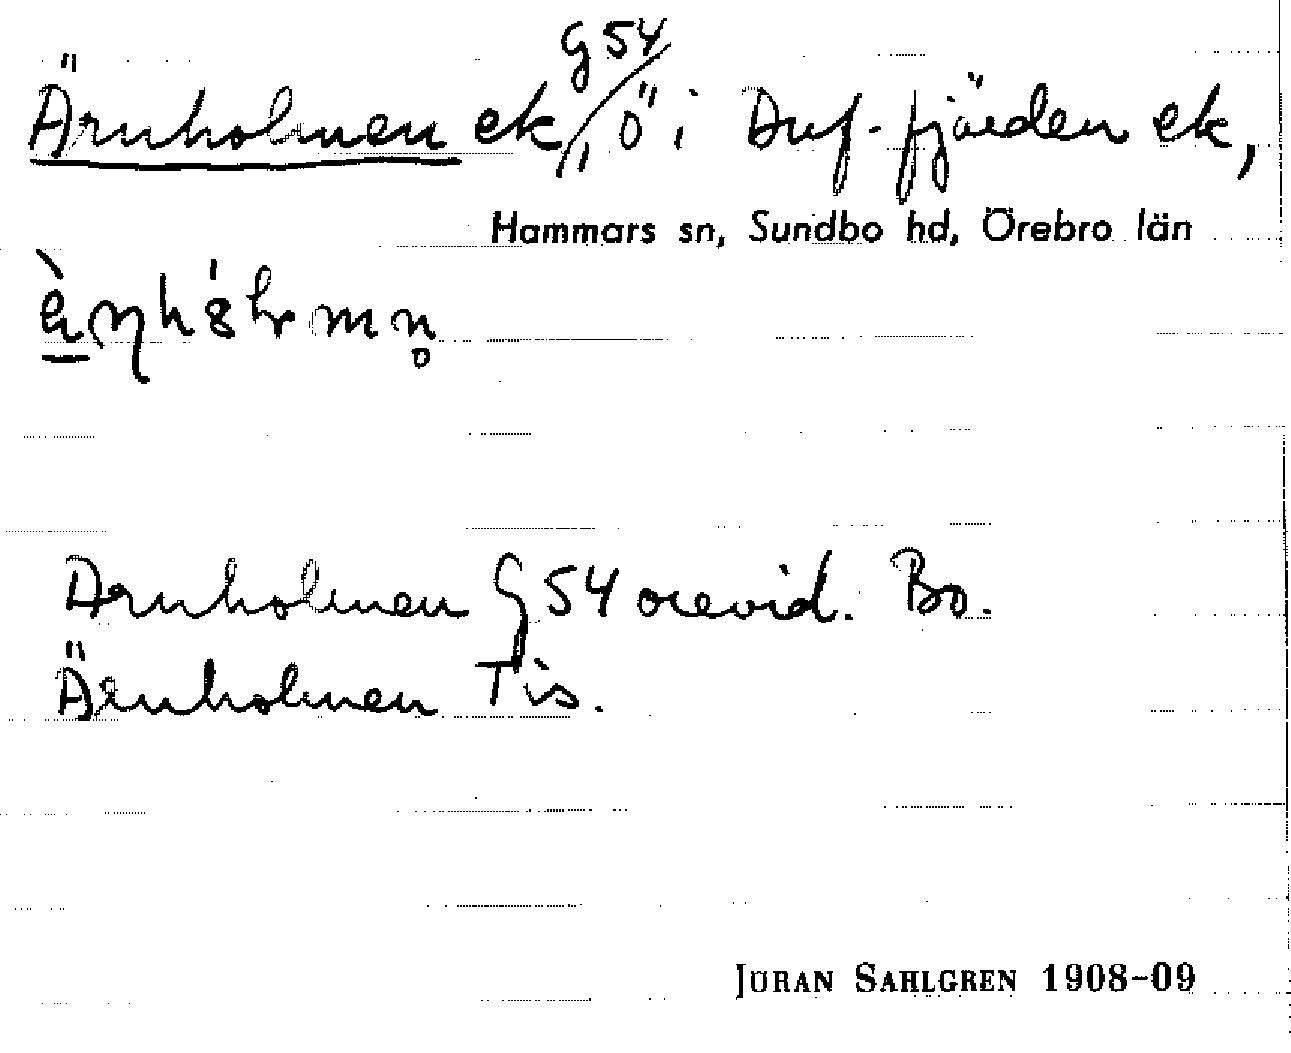 G 54
Ärnholmen ek, Ö i Duf-fjärden ek,
Hammars sn, Sundbo hd, Örebro län
Arnholmen G 54 orevid. Bo.
Ärnholmen Tis.
JÖRAN SAHLGREN 1908-09